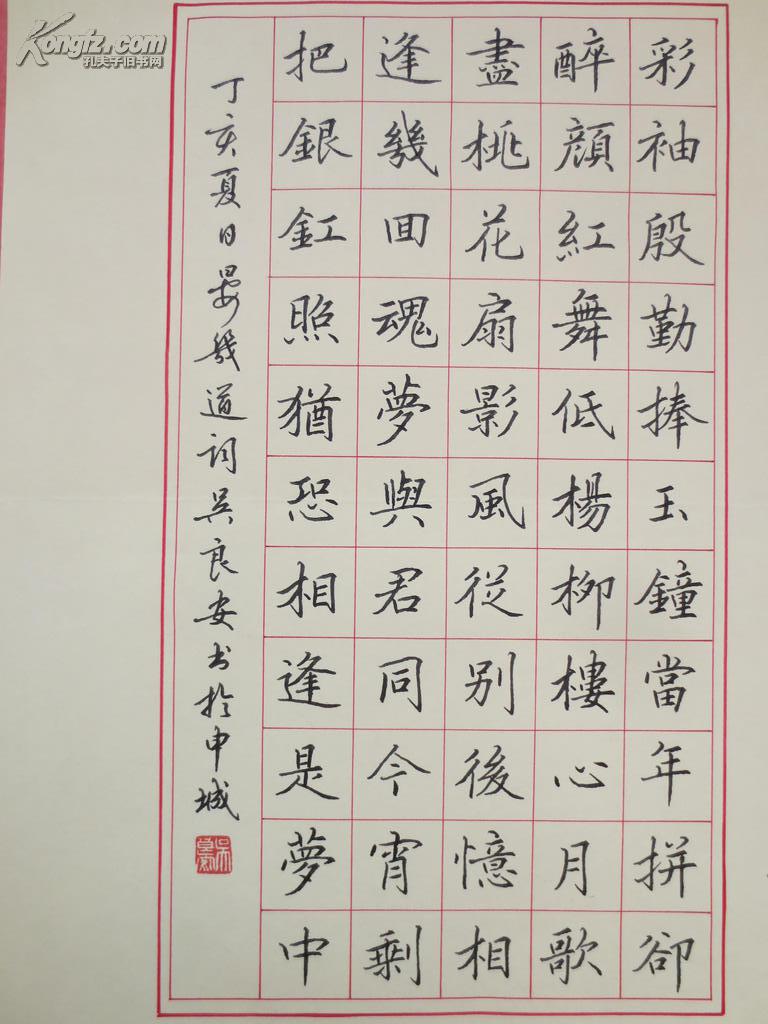 彩袖殷勤捧玉鐘當年拼卻
醉顏紅舞低楊柳樓心月歌
盡桃花扇影風從別後憶相
逢幾回魂夢與君同今宵剩
把銀釭照猶恐相逢是夢中
丁亥夏日晏幾道詞吳良安书於申城
Kongfz.com
孔夫子旧书网